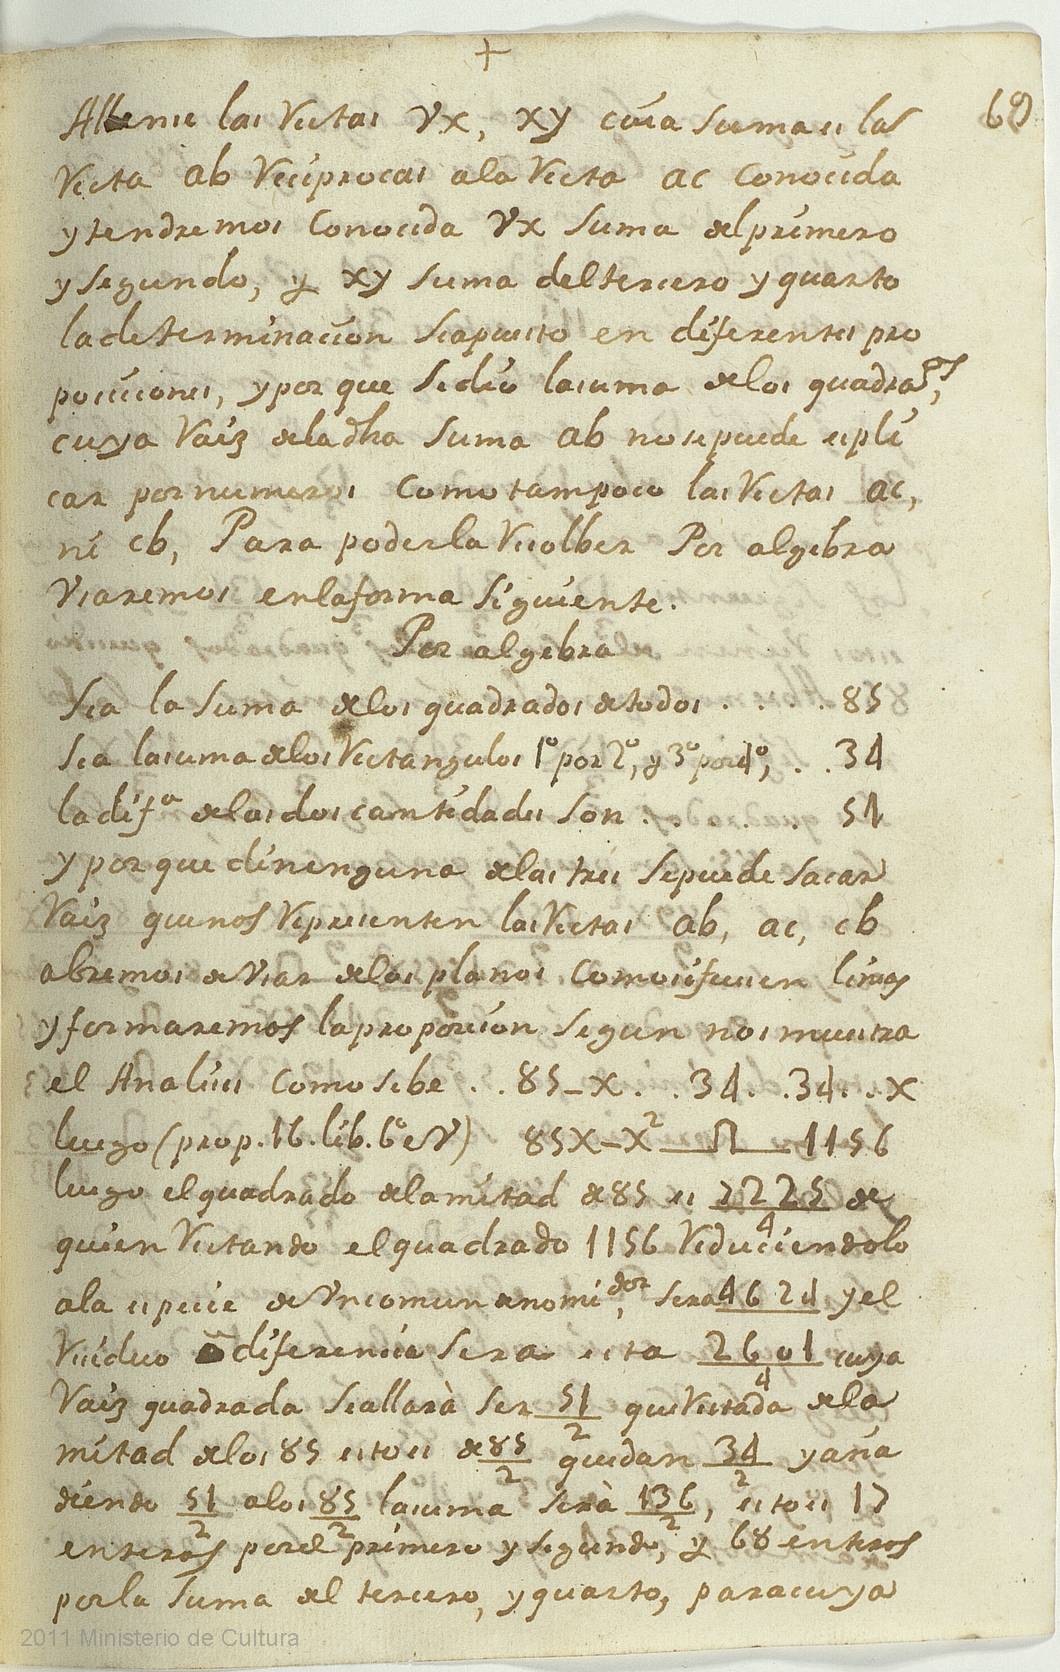 +
69
Allense las Rectas vx, xy cuia suma es las
Recta ab Reciprocas ala Recta ac Conocida
y tendremos Conocida vx suma del primero
y segundo, y xy suma del tercero y quarto
la determinacion seapuesto en diferentes pro
posiciones, y por que sedio lasuma delos quadra.os,
cuya Raiz dela dha suma ab nosepuede espli
car pornumeros Como tampoco las Rectas ac,
ni cb, Para poderla Resolber Por algebra
Usaremos enlaforma siguiente.
Por algebra
Sea la suma delos quadrados de todos . . . . 85
Sea lasuma delos Rectangulos 1º por 2º, y 3º por 4º, . . 34
la difª delas dos cantidades son . . . . . 51
y por que deninguna delas tres sepuede sacar
Raiz quenos Representen las Rectas ab, ac, cb
abremos de Usar delos planos Comosifuesen lineas
y formaremos la proporcion segun nos muestra
el Analisis Como sebe . . 85-x . . 34 . . 34 . . x
luego (prop. 16. lib. 6º de V) 85x-x² ⊓ 1156
luego el quadrado dela mitad de 85 es 7225/4 de
quien Restando el quadrado 1156 Reduciendolo
ala especie de Uncomun denomi.dor, sera 4624 y el
Residuo o diferencia sera esta 2601/4 cuya
Raiz quadrada seallarà ser 51/2 que Restada dela
mitad delos 85 estoes de 85/2 quedan 34/2 y aña
diendo 51/2 alos 85/2 lasuma serà 136/2, estoes 17
enteros porel primero y segundo, y 68 enteros
por la suma del tercero, y quarto, paracuya
2011 Ministerio de Cultura